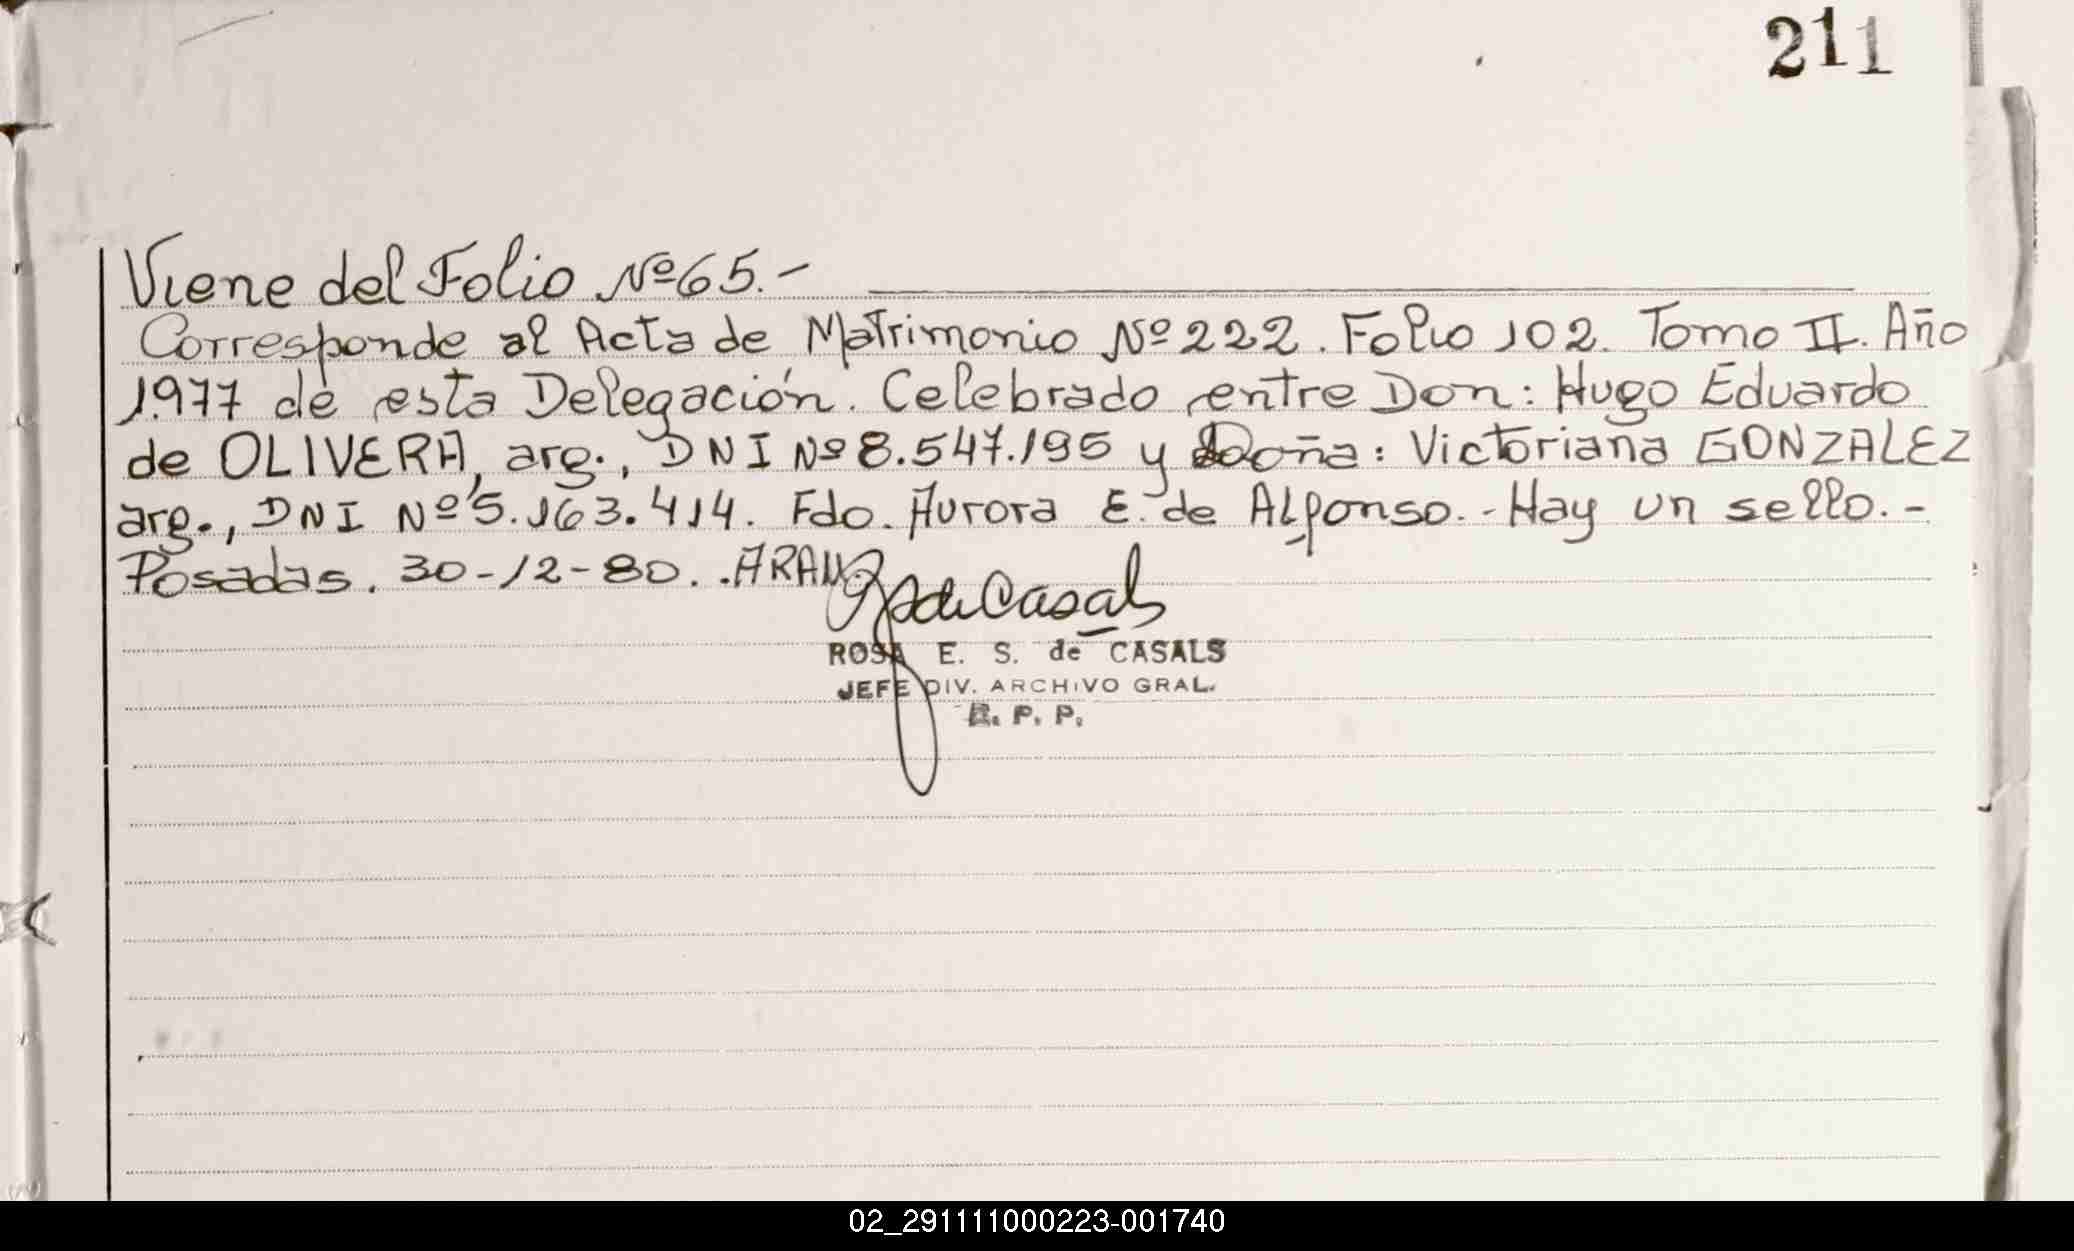 211
Viene del Folio Nº65.-
Corresponde al Acta de Matrimonio Nº222. Folio 102. Tomo II. Año
1.977 de esta Delegación. Celebrado entre Don: Hugo Eduardo
de OLIVERA, arg., DNI Nº8.547.195 y Doña: Victoriana GONZALEZ
arg., DNI Nº5.163.414. Fdo. Aurora E. de Alfonso.-Hay un sello.-
Posadas. 30-12-80.
de Casals
ROSA E. S. de CASALS
JEFE DIV. ARCHIVO GRAL.
R. P. P.
02_291111000223-001740